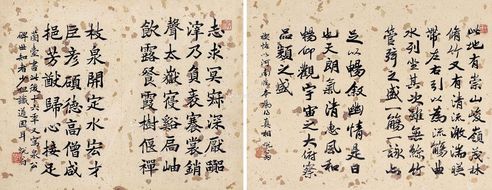 此地有崇山峻嶺茂林
脩竹又有清流激湍暎
帶左右引以為流觴曲
水列坐其次雖無絲竹
管弦之盛一觴一詠亦
足以暢叙幽情是日
也天朗氣清惠風和
暢仰觀宇宙之大俯察
品類之盛
志求冥寂深厭囂
滓乃負袠褰裳銷
聲太嶽寢谿局岫
飲露餐霞樹偃禪
枝泉開定水宏才
巨彥碩德高僧咸
挹芳猷歸心接足
碑世知者少但識道因耳